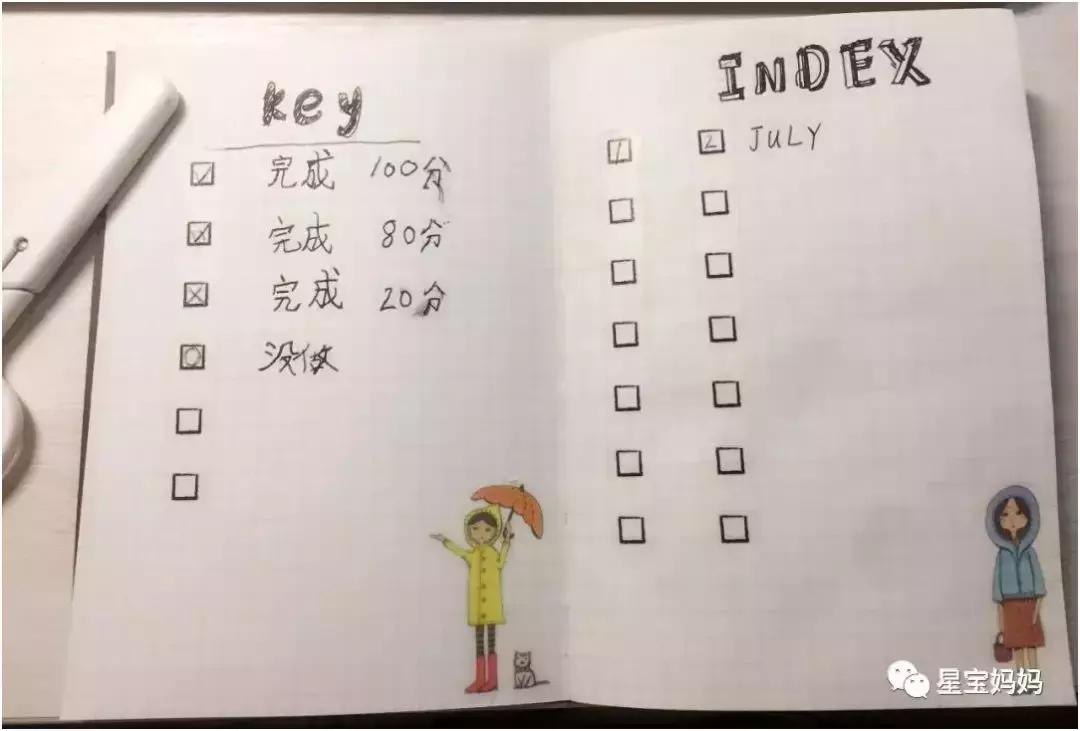 key
完成 100分
完成 80分
完成 20分
没做
INDEX
1 2 JULY
星宝妈妈